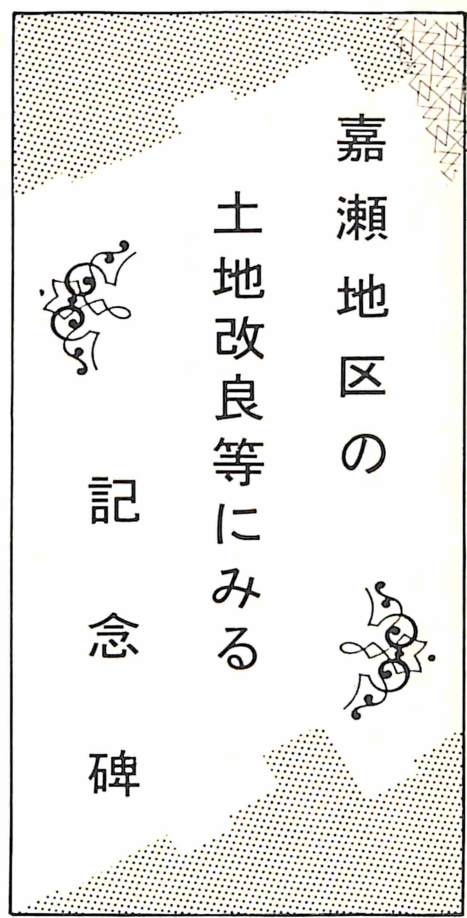 嘉瀬地区の
土地改良等にみる
記念碑